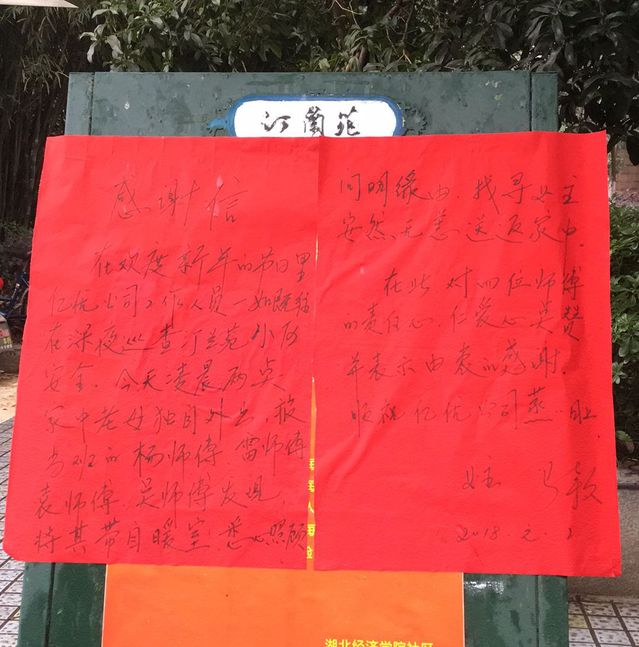 汀兰苑
感谢信
在欢度新年的节日里
亿优公司工作人员一如既往
在深夜巡查汀兰苑小区
安全。今天凌晨两点
家中老母独自外出，被
当班的杨师傅、雷师傅
袁师傅、吴师傅发现，
将其带自暖室，悉心照顾
问明缘由，找寻业主
安然无恙送返家中。
在此对四位师傅
的责任心、仁爱心点赞
并表示由衷的感谢。
顺祝亿优公司蒸蒸日上
业主
2018.元.2
湖北经济学院社区